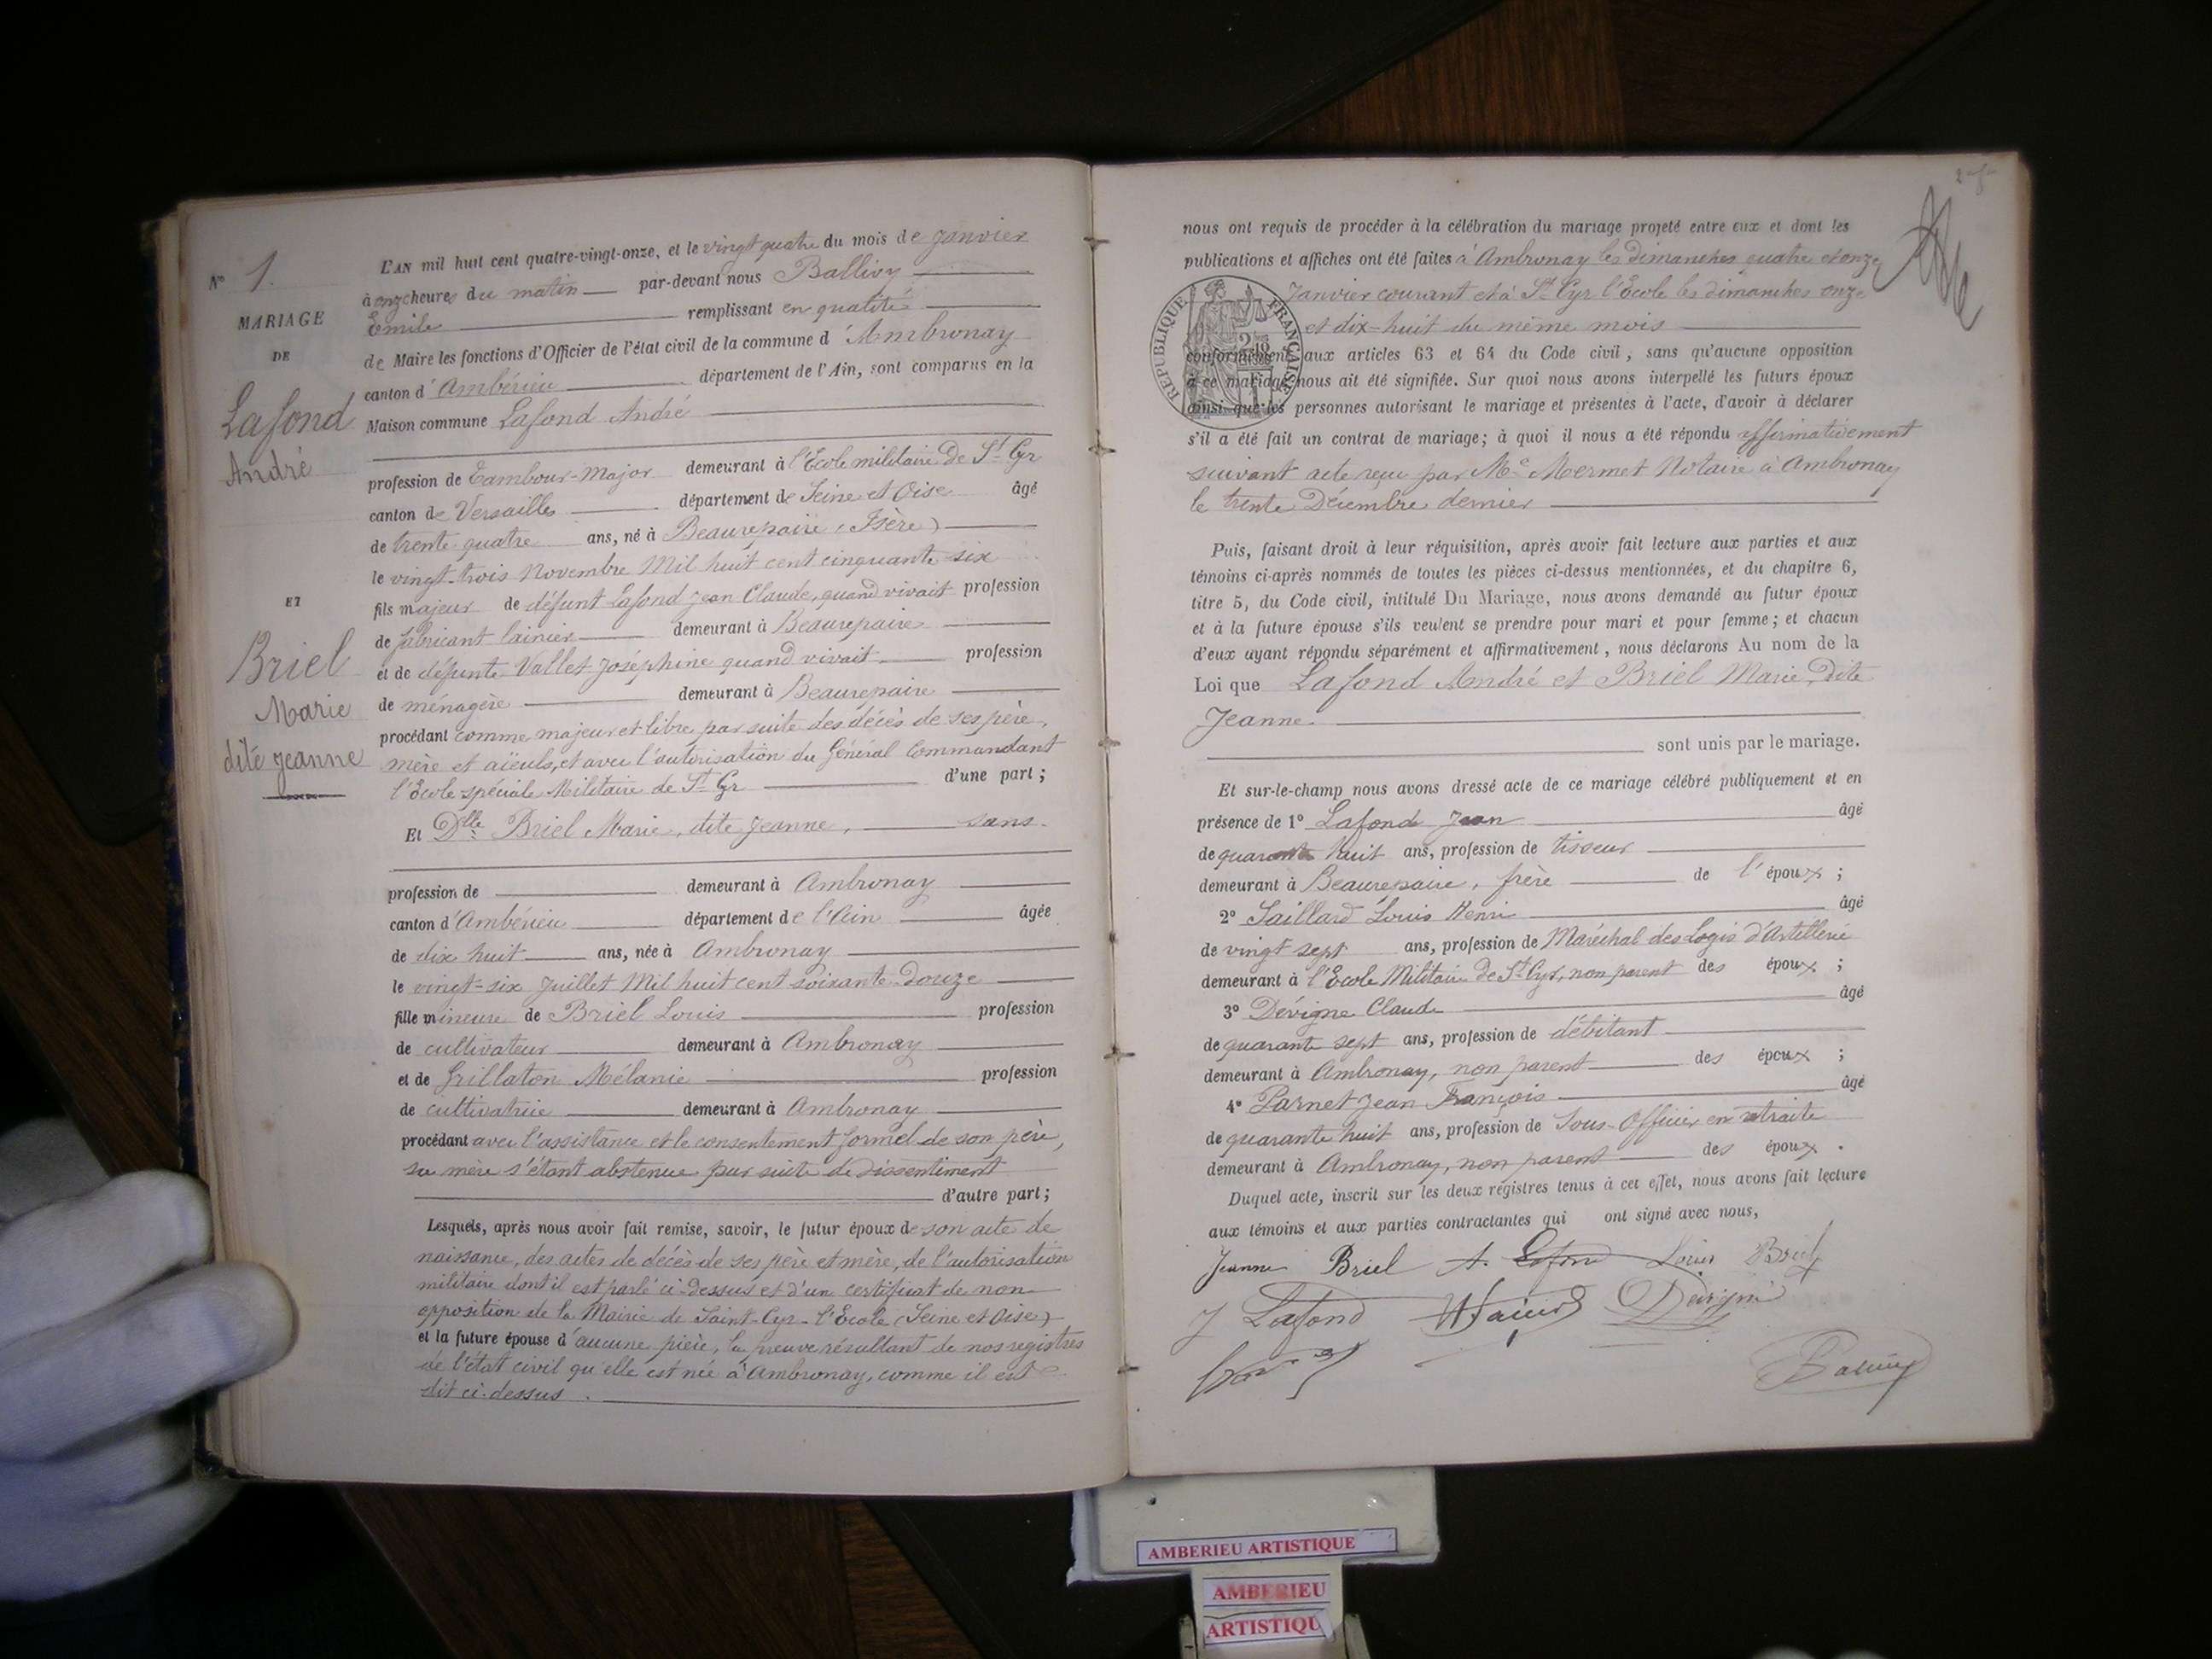 N° 1.
MARIAGE
DE
Lafond
André
ET
Briel
Marie
dite Jeanne
L'AN mil huit cent quatre-vingt-onze, et le vingt quatre du mois de Janvier
à onze heures du matin par-devant nous Ballivy
Emile remplissant en qualité
de Maire les fonctions d'Officier de l'état civil de la commune d'Ambronay
canton d'Ambérieu département de l'Ain, sont comparus en la
Maison commune Lafond André
profession de Tambour-Major demeurant à l'Ecole militaire de St Cyr
canton de Versailles département de Seine et Oise âgé
de trente quatre ans, né à Beaurepaire (Isère)
le vingt-trois Novembre Mil huit cent cinquante six
fils majeur de défunt Lafond Jean Claude, quand vivait profession
de fabricant lainier demeurant à Beaurepaire
et de défunte Vallet Joséphine quand vivait profession
de ménagère demeurant à Beaurepaire
procédant comme majeur et libre par suite des décès de ses père,
mère et aïeuls, et avec l'autorisation du Général Commandant
l'Ecole spéciale Militaire de St Cyr d'une part ;
Et Dlle Briel Marie, dite Jeanne, sans
profession de demeurant à Ambronay
canton d'Ambérieu département de l'Ain âgée
de dix huit ans, née à Ambronay
le vingt-six Juillet Mil huit cent soixante-douze
fille mineure de Briel Louis profession
de cultivateur demeurant à Ambronay
et de Grillaton Mélanie profession
de cultivatrice demeurant à Ambronay
procédant avec l'assistance et le consentement formel de son père,
sa mère s'étant abstenue par suite de dissentiment
d'autre part ;
Lesquels, après nous avoir fait remise, savoir, le futur époux de son acte de
naissance, des actes de décès de ses père et mère, de l'autorisation
militaire dont il est parlé ci-dessus et d'un certificat de non
opposition de la Mairie de Saint-Cyr-l'Ecole (Seine et Oise)
et la future épouse d'aucune pièce, la preuve résultant de nos registres
de l'état civil qu'elle est née à Ambronay, comme il est
dit ci-dessus.
nous ont requis de procéder à la célébration du mariage projeté entre eux et dont les
publications et affiches ont été faites à Ambronay les dimanches quatre et onze
Janvier courant et à St Cyr l'Ecole les dimanches onze
et dix-huit du même mois
conformément aux articles 63 et 64 du Code civil, sans qu'aucune opposition
à ce mariage nous ait été signifiée. Sur quoi nous avons interpellé les futurs époux
ainsi que les personnes autorisant le mariage et présentes à l'acte, d'avoir à déclarer
s'il a été fait un contrat de mariage; à quoi il nous a été répondu affirmativement
suivant acte reçu par Me Mermet Notaire à Ambronay
le trente Décembre dernier
REPUBLIQUE FRANÇAISE
Puis, faisant droit à leur réquisition, après avoir fait lecture aux parties et aux
témoins ci-après nommés de toutes les pièces ci-dessus mentionnées, et du chapitre 6,
titre 5, du Code civil, intitulé Du Mariage, nous avons demandé au futur époux
et à la future épouse s'ils veulent se prendre pour mari et pour femme; et chacun
d'eux ayant répondu séparément et affirmativement, nous déclarons Au nom de la
Loi que Lafond André et Briel Marie, dite
Jeanne.
sont unis par le mariage.
Et sur-le-champ nous avons dressé acte de ce mariage célébré publiquement et en
présence de 1° Lafond Jean âgé
de quarante huit ans, profession de tisseur
demeurant à Beaurepaire, frère de l'époux ;
2° Saillard Louis Henri âgé
de vingt sept ans, profession de Maréchal des Logis d'Artillerie
demeurant à l'Ecole Militaire de St-Cyr, non parent des époux ;
3° Dévigne Claude âgé
de quarante sept ans, profession de débitant
demeurant à Ambronay, non parent des époux ;
4° Parnet Jean François âgé
de quarante huit ans, profession de Sous-Officier en retraite
demeurant à Ambronay, non parent des époux.
Duquel acte, inscrit sur les deux registres tenus à cet effet, nous avons fait lecture
aux témoins et aux parties contractantes qui ont signé avec nous,
Jeanne Briel A. Lafond Louis Briel
J Lafond Dévigne
AMBERIEU ARTISTIQUE
AMBERIEU
ARTISTIQU